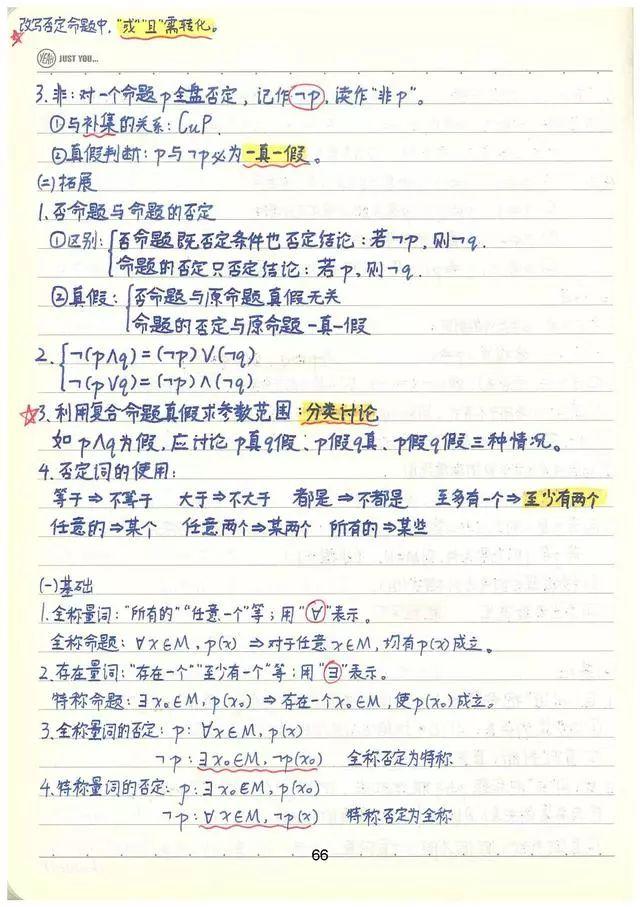 ☆改写否定命题中,"或""且"需转化。
YEAH JUST YOU...
3.非:对一个命题p全盘否定,记作¬p,读作"非p"。
①与补集的关系:∁uP.
②真假判断:p与¬p必为一真一假。
(二)拓展
1.否命题与命题的否定
①区别:{否命题既否定条件也否定结论:若¬p,则¬q.
命题的否定只否定结论:若p,则¬q.
②真假:{否命题与原命题真假无关
命题的否定与原命题一真一假
2.{¬(p∧q)=(¬p)∨(¬q)
¬(p∨q)=(¬p)∧(¬q)
☆3.利用复合命题真假求参数范围:分类讨论
如p∧q为假,应讨论p真q假、p假q真、p假q假三种情况。
4.否定词的使用:
等于⇒不等于 大于⇒不大于 都是⇒不都是 至多有一个⇒至少有两个
任意的⇒某个 任意两个⇒某两个 所有的⇒某些
(一)基础
1.全称量词:"所有的""任意一个"等;用"∀"表示。
全称命题:∀x∈M,p(x) ⇒对于任意x∈M,均有p(x)成立。
2.存在量词:"存在一个""至少有一个"等;用"∃"表示。
特称命题:∃x₀∈M,p(x₀) ⇒存在一个x₀∈M,使p(x₀)成立。
3.全称量词的否定:p:∀x∈M,p(x)
¬p:∃x₀∈M,¬p(x₀) 全称否定为特称
4.特称量词的否定:p:∃x₀∈M,p(x₀)
¬p:∀x∈M,¬p(x) 特称否定为全称
66